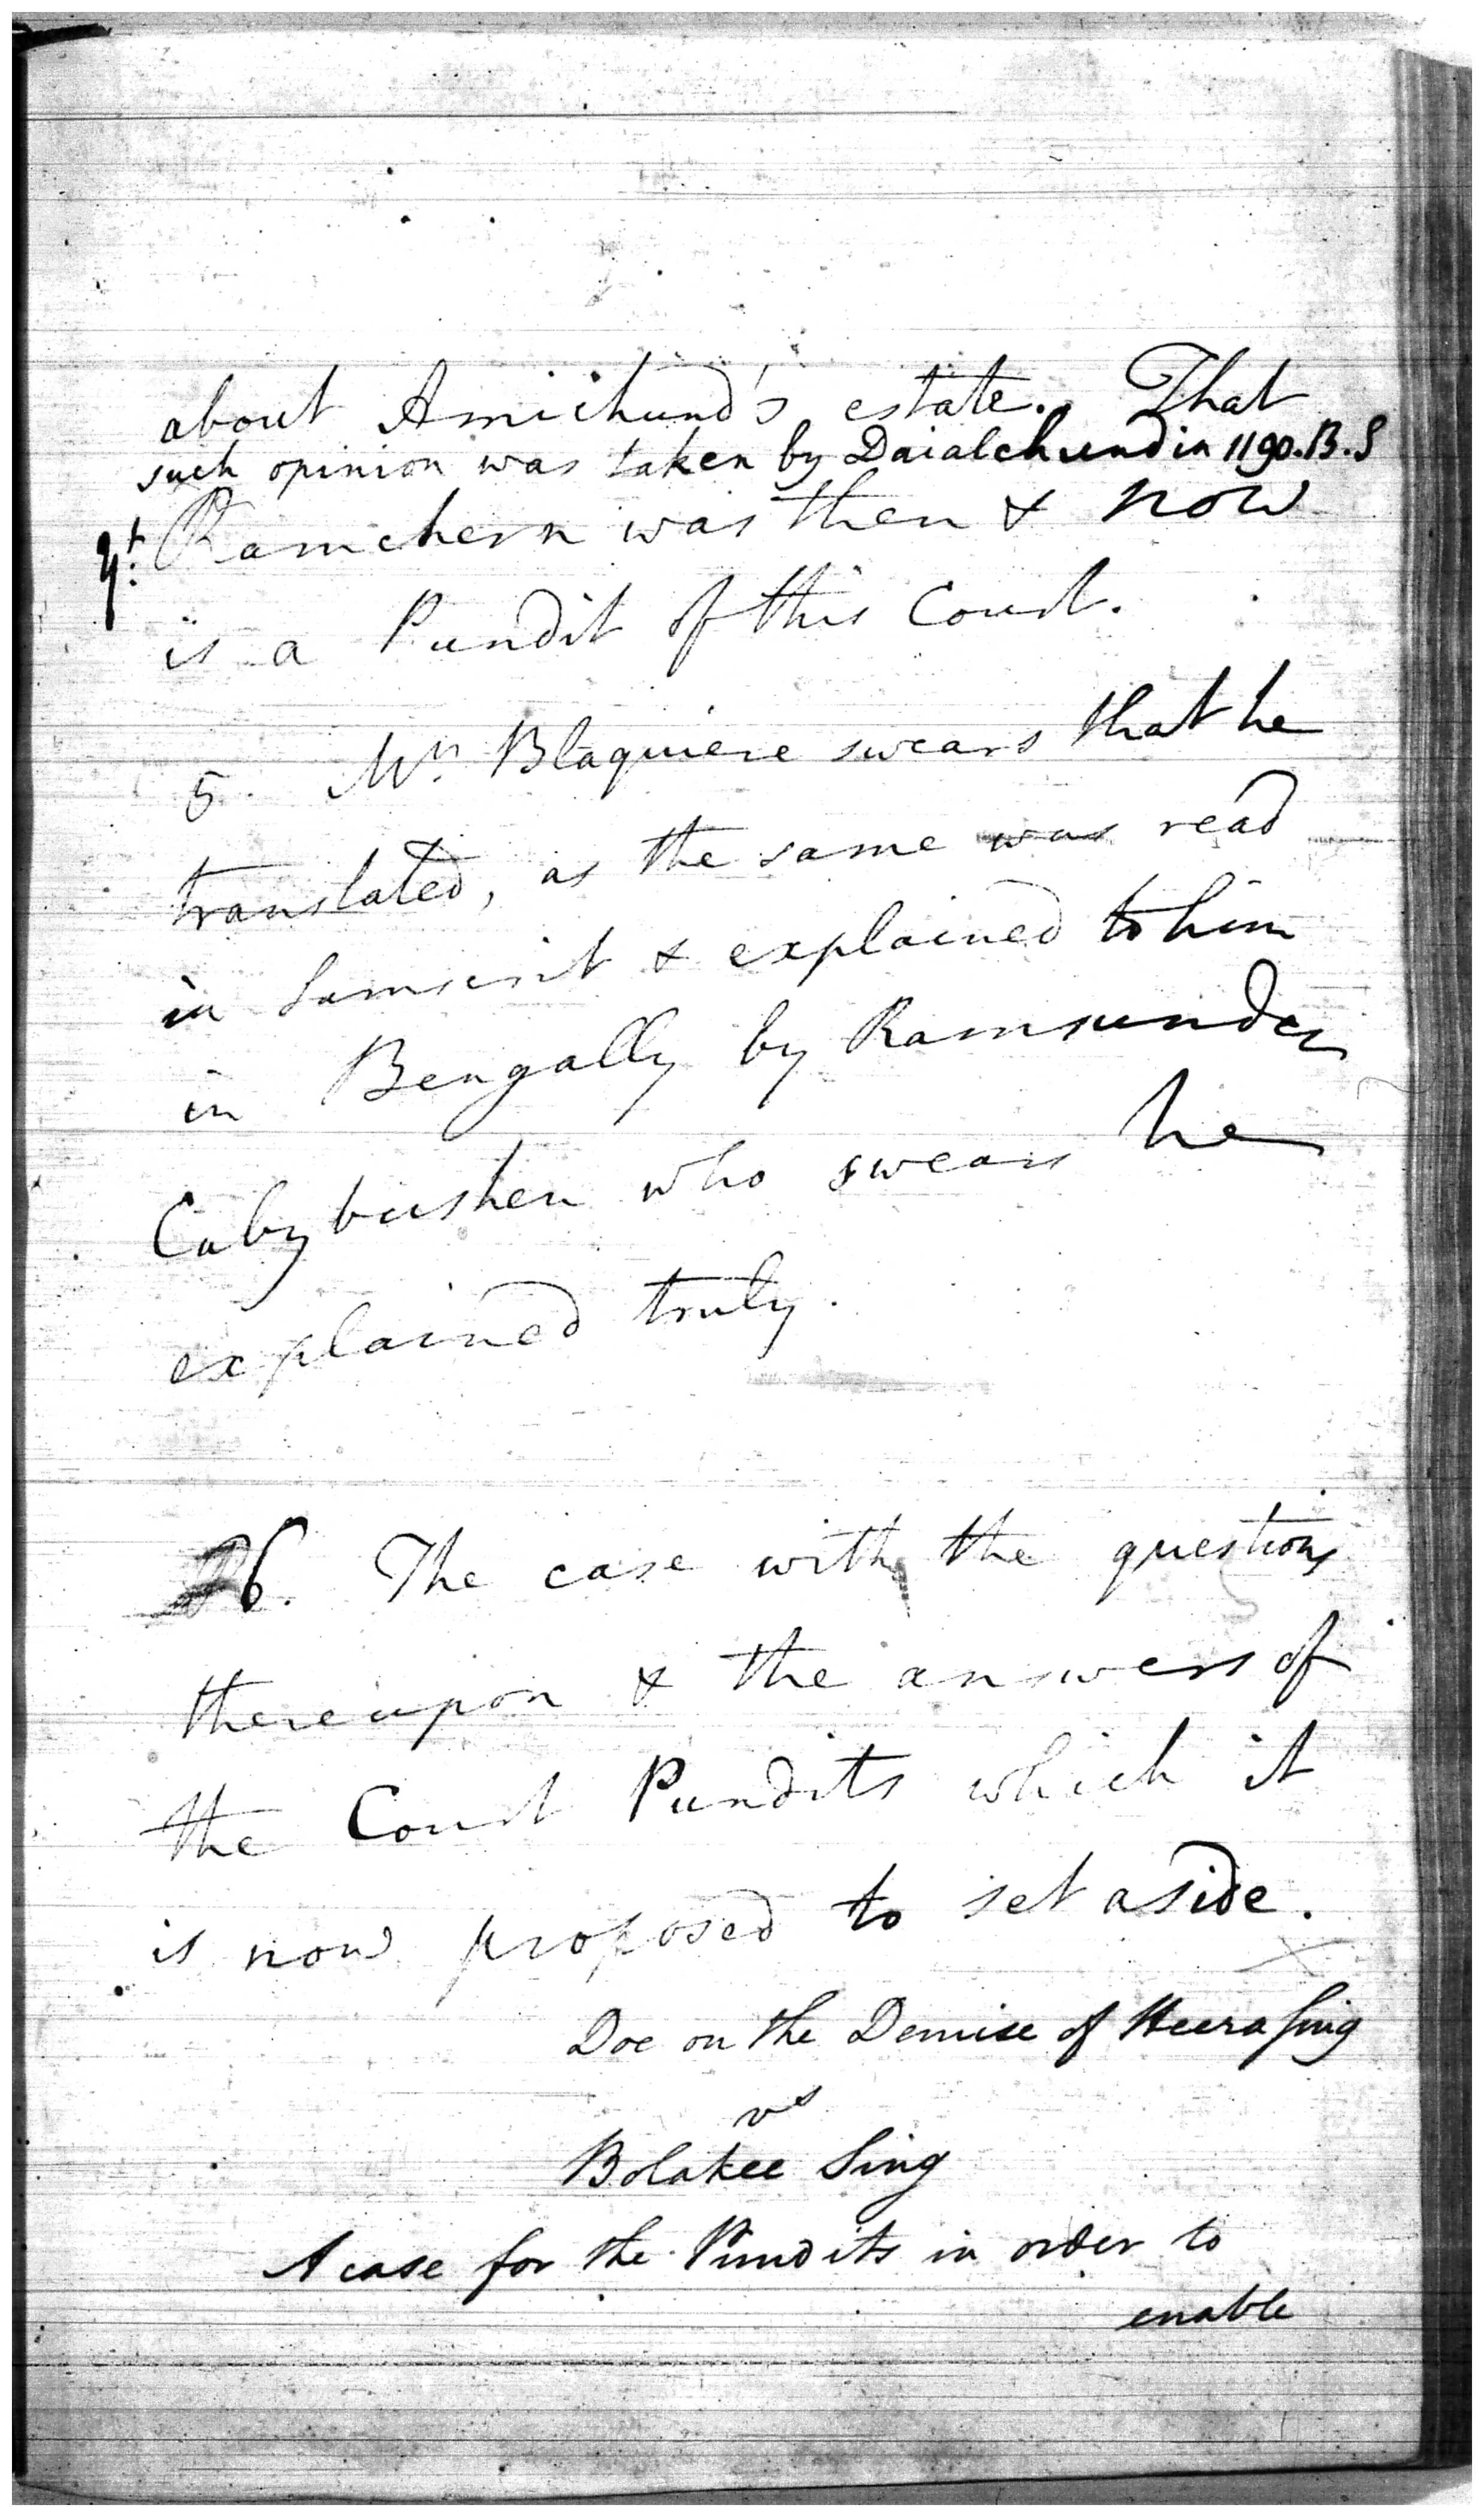 about Amichund's estate. That
such opinion was taken by Daialchund in 1190. B. S
yt. Ramchern was then & now
is a Pundit of this Court.
5. Mr. Blaquiere swears that he
translated, as the same was read
in Samscrit & explained to him
in Bengally by Ramsunder
Cabybushen who swears he
explained truly.
6. The case with the questions
thereupon & the answers of
the Court Pundits which it
is now proposed to set aside.
Doe on the Demise of Heera Sing
vs
Bolakee Sing
A case for the Pundits in order to
enable